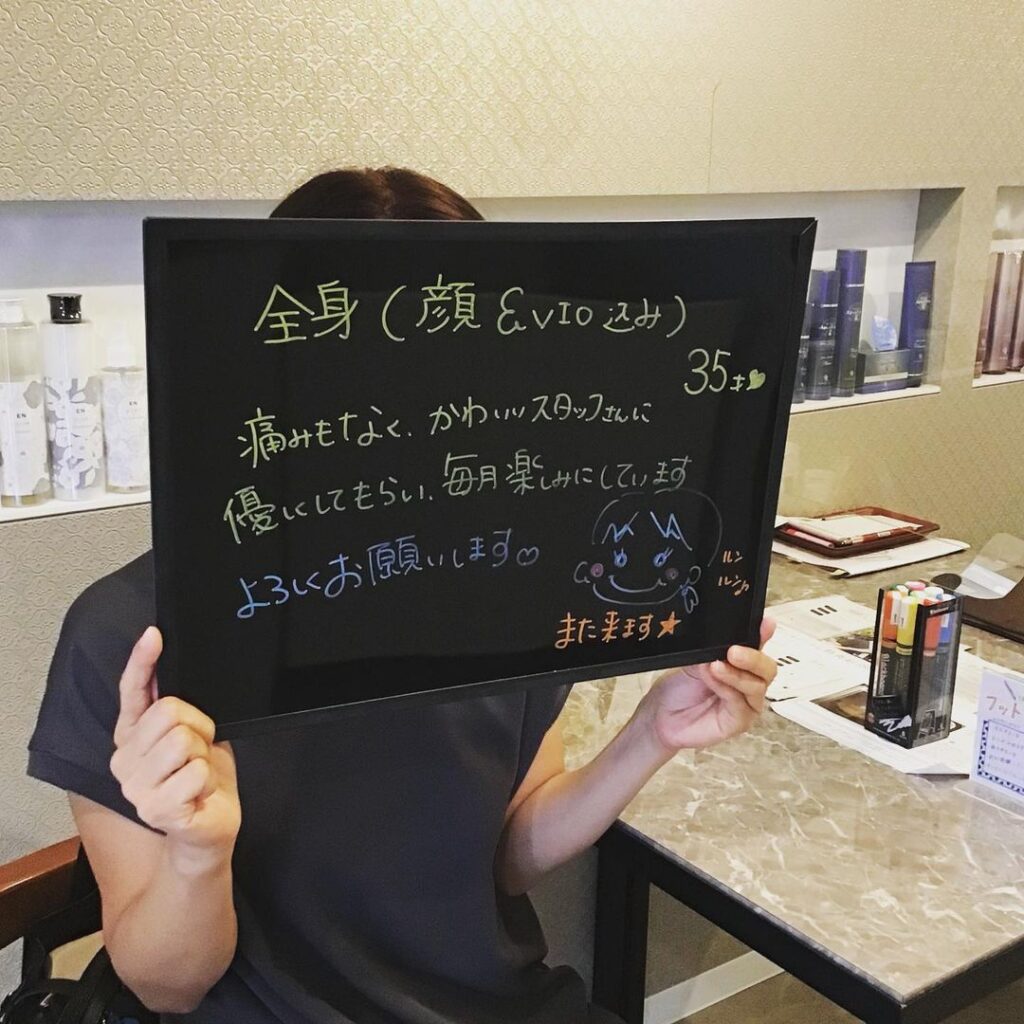 全身(顔&VIO込み)
35才
痛みもなく、かわいいスタッフさんに
優しくしてもらい、毎月楽しみにしています
よろしくお願いします♡
ルン
ルン♪
また来ます★
EN
EN
フット